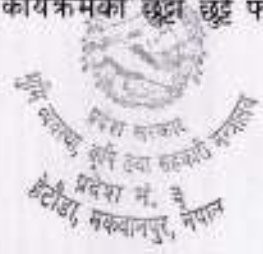 कार्यक्रमको छुट्टा छुट्टै
प्रदेश सरकार
भूमि व्यवस्था, कृषि तथा सहकारी मन्त्रालय
प्रदेश नं. ३
हेटौंडा, मकवानपुर, नेपाल